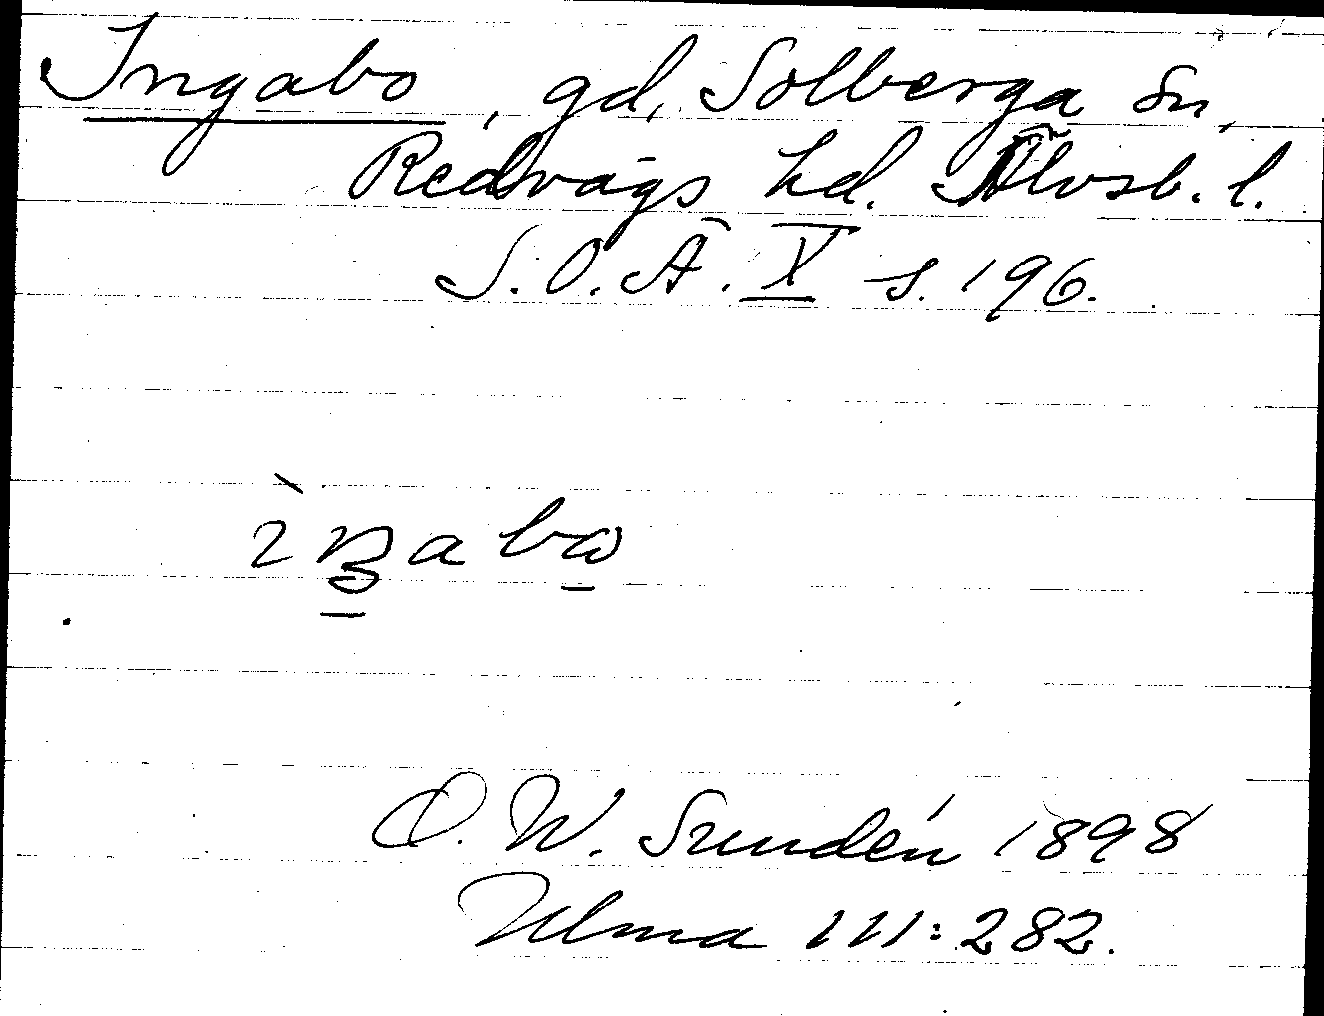 Ingabo, gd, Solberga sn,
Redvägs hd. Älvsb. l.
S.O.Ä. X s. 196.
O. W. Sundén 1898
Ulma 111:282.